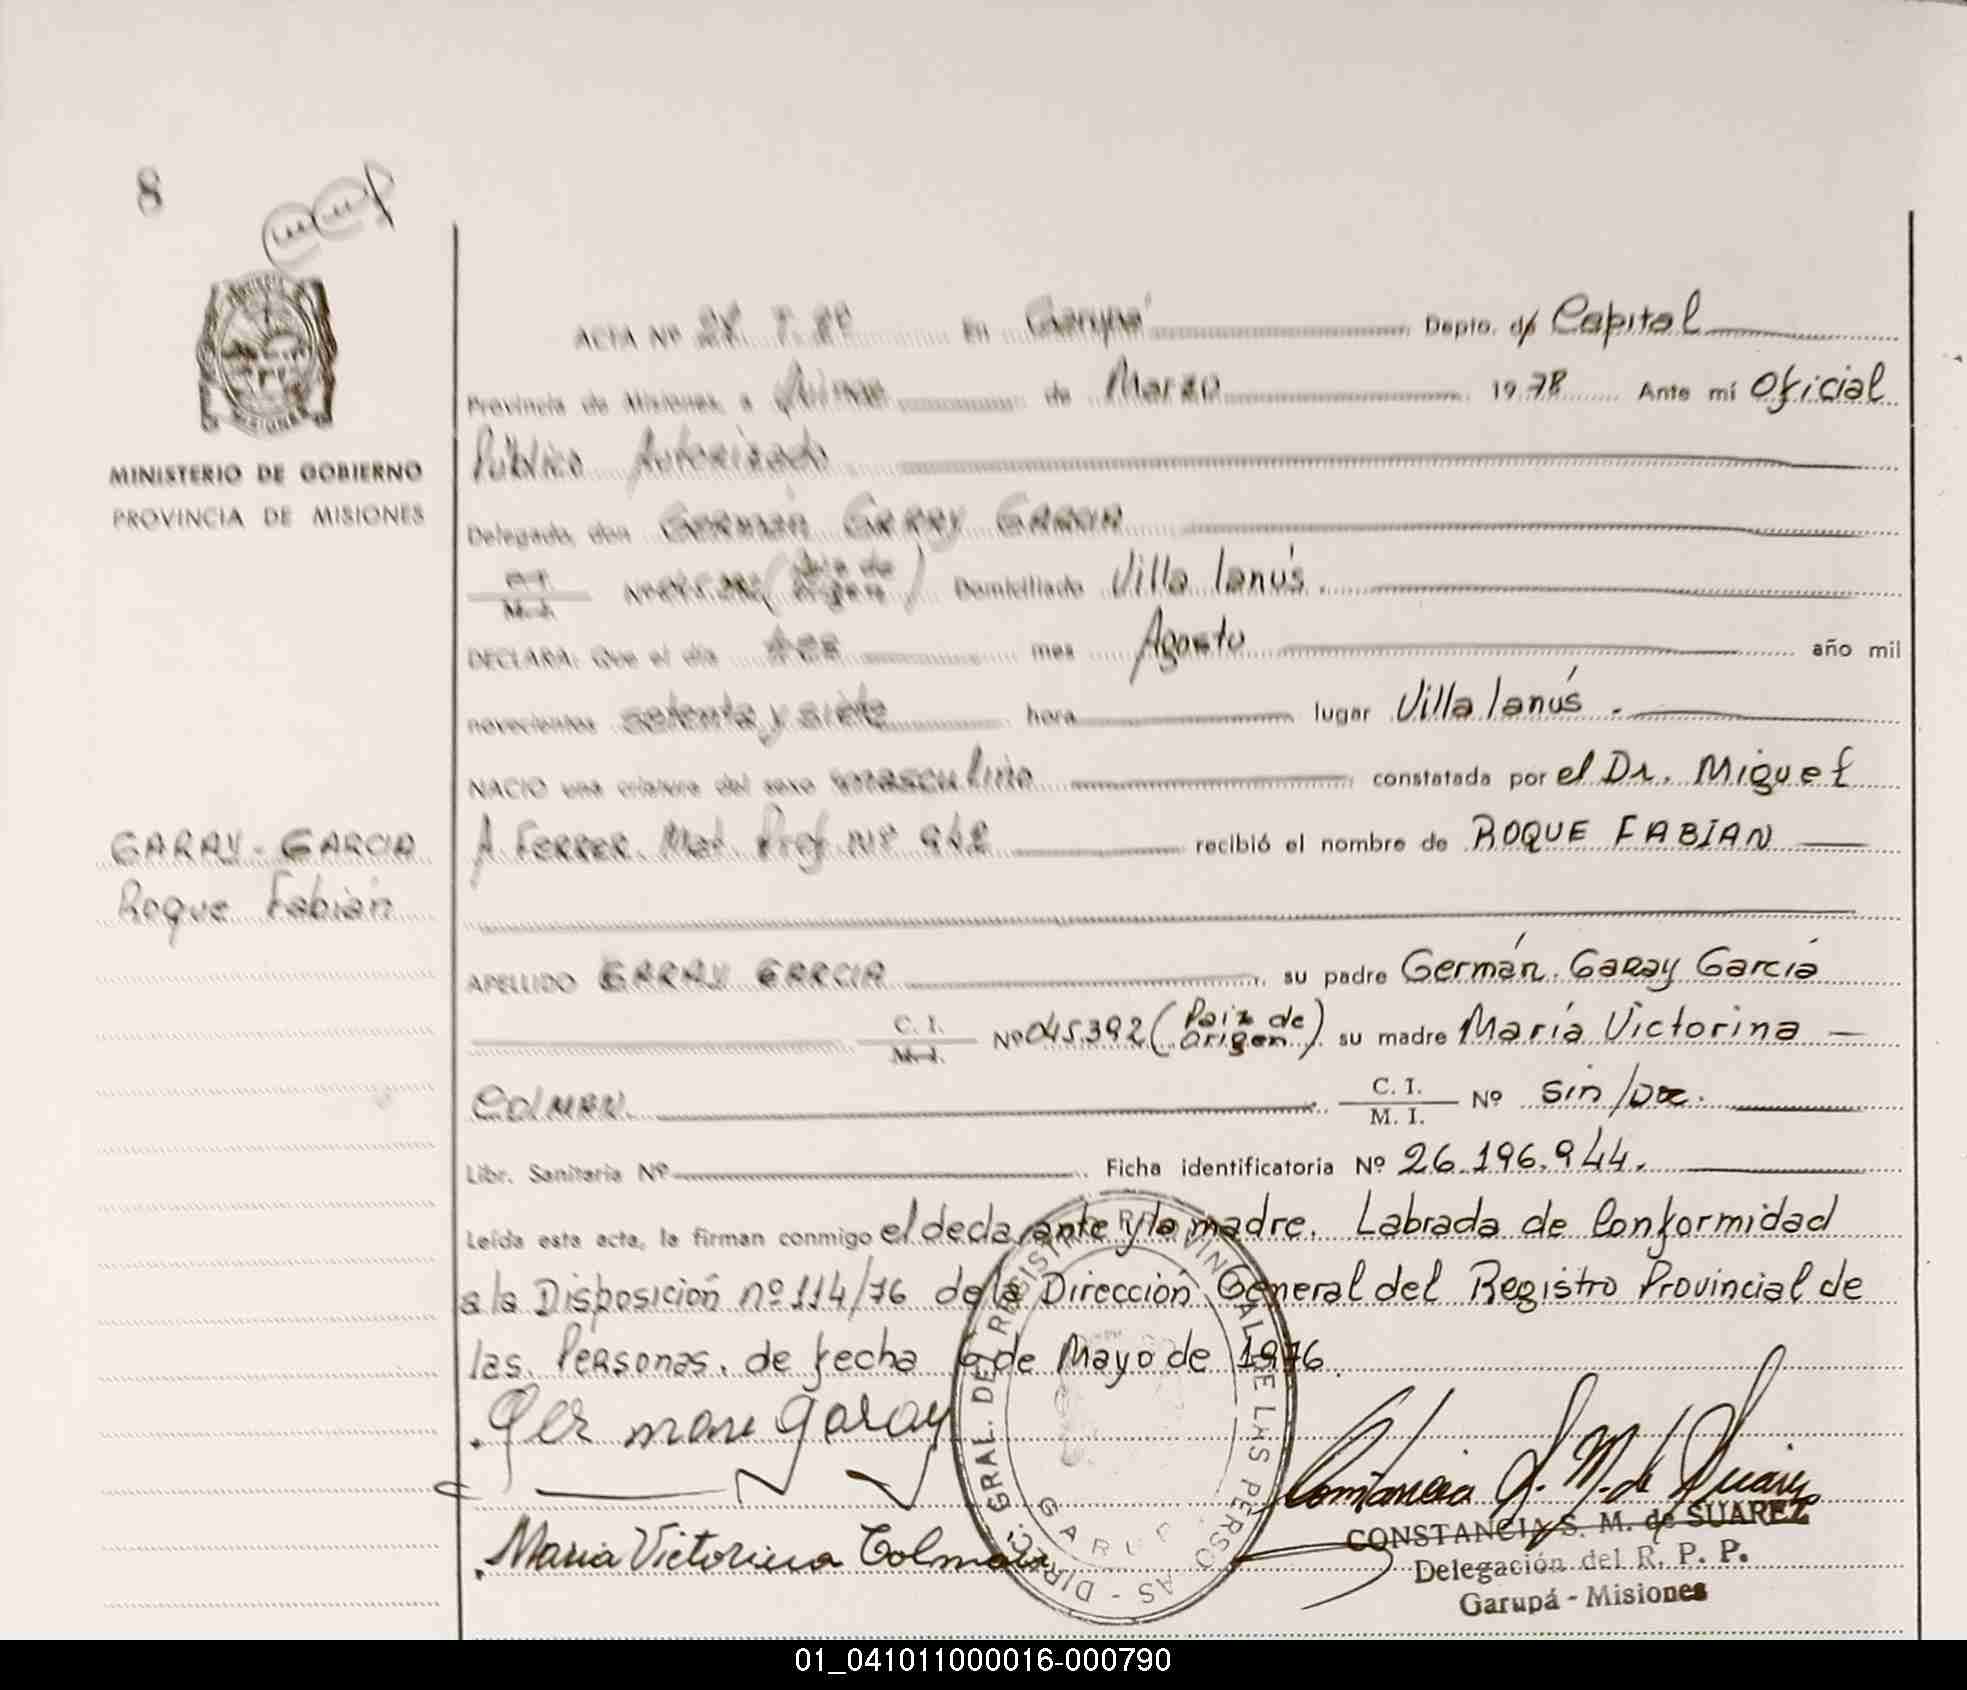 8
MINISTERIO DE GOBIERNO
PROVINCIA DE MISIONES
GARAY - GARCIA
Roque Fabián
ACTA Nº En Garupá Depto. de Capital
Provincia de Misiones, a Quince de Marzo 1978 Ante mí Oficial
Público Autorizado
Delegado, don Germán GARAY GARCIA
C. I. M. I. Nº (Pais de Origen) Domiciliado Villa lanús.
DECLARA: Que el día mes Agosto año mil
novecientos setenta y siete hora lugar Villa lanús.
NACIO una criatura del sexo masculino constatada por el Dr. Miguel
A. FERRER. Mat. Prof. Nº recibió el nombre de ROQUE FABIAN
APELLIDO GARAY GARCIA su padre Germán. Garay García
C. I. M. I. Nº 045.392 (Paiz de Origen) su madre María Victorina
COLMAN. C. I. M. I. Nº sin/Doc.
Libr. Sanitaria Nº Ficha identificatoria Nº 26.196.944.
Leída esta acta, la firman conmigo el declarante y la madre. Labrada de Conformidad
a la Disposición nº 114/76 de la Dirección General del Registro Provincial de
las Personas. de fecha 6 de Mayo de 1976.
German Garay
Maria Victorina Colman
DIREC. GRAL. DEL REGISTRO PROVINCIAL DE LAS PERSONAS
GARUPA
Constancia S. M. de Suarez
CONSTANCIA S. M. de SUAREZ
Delegación del R. P. P.
Garupá - Misiones
01_041011000016-000790